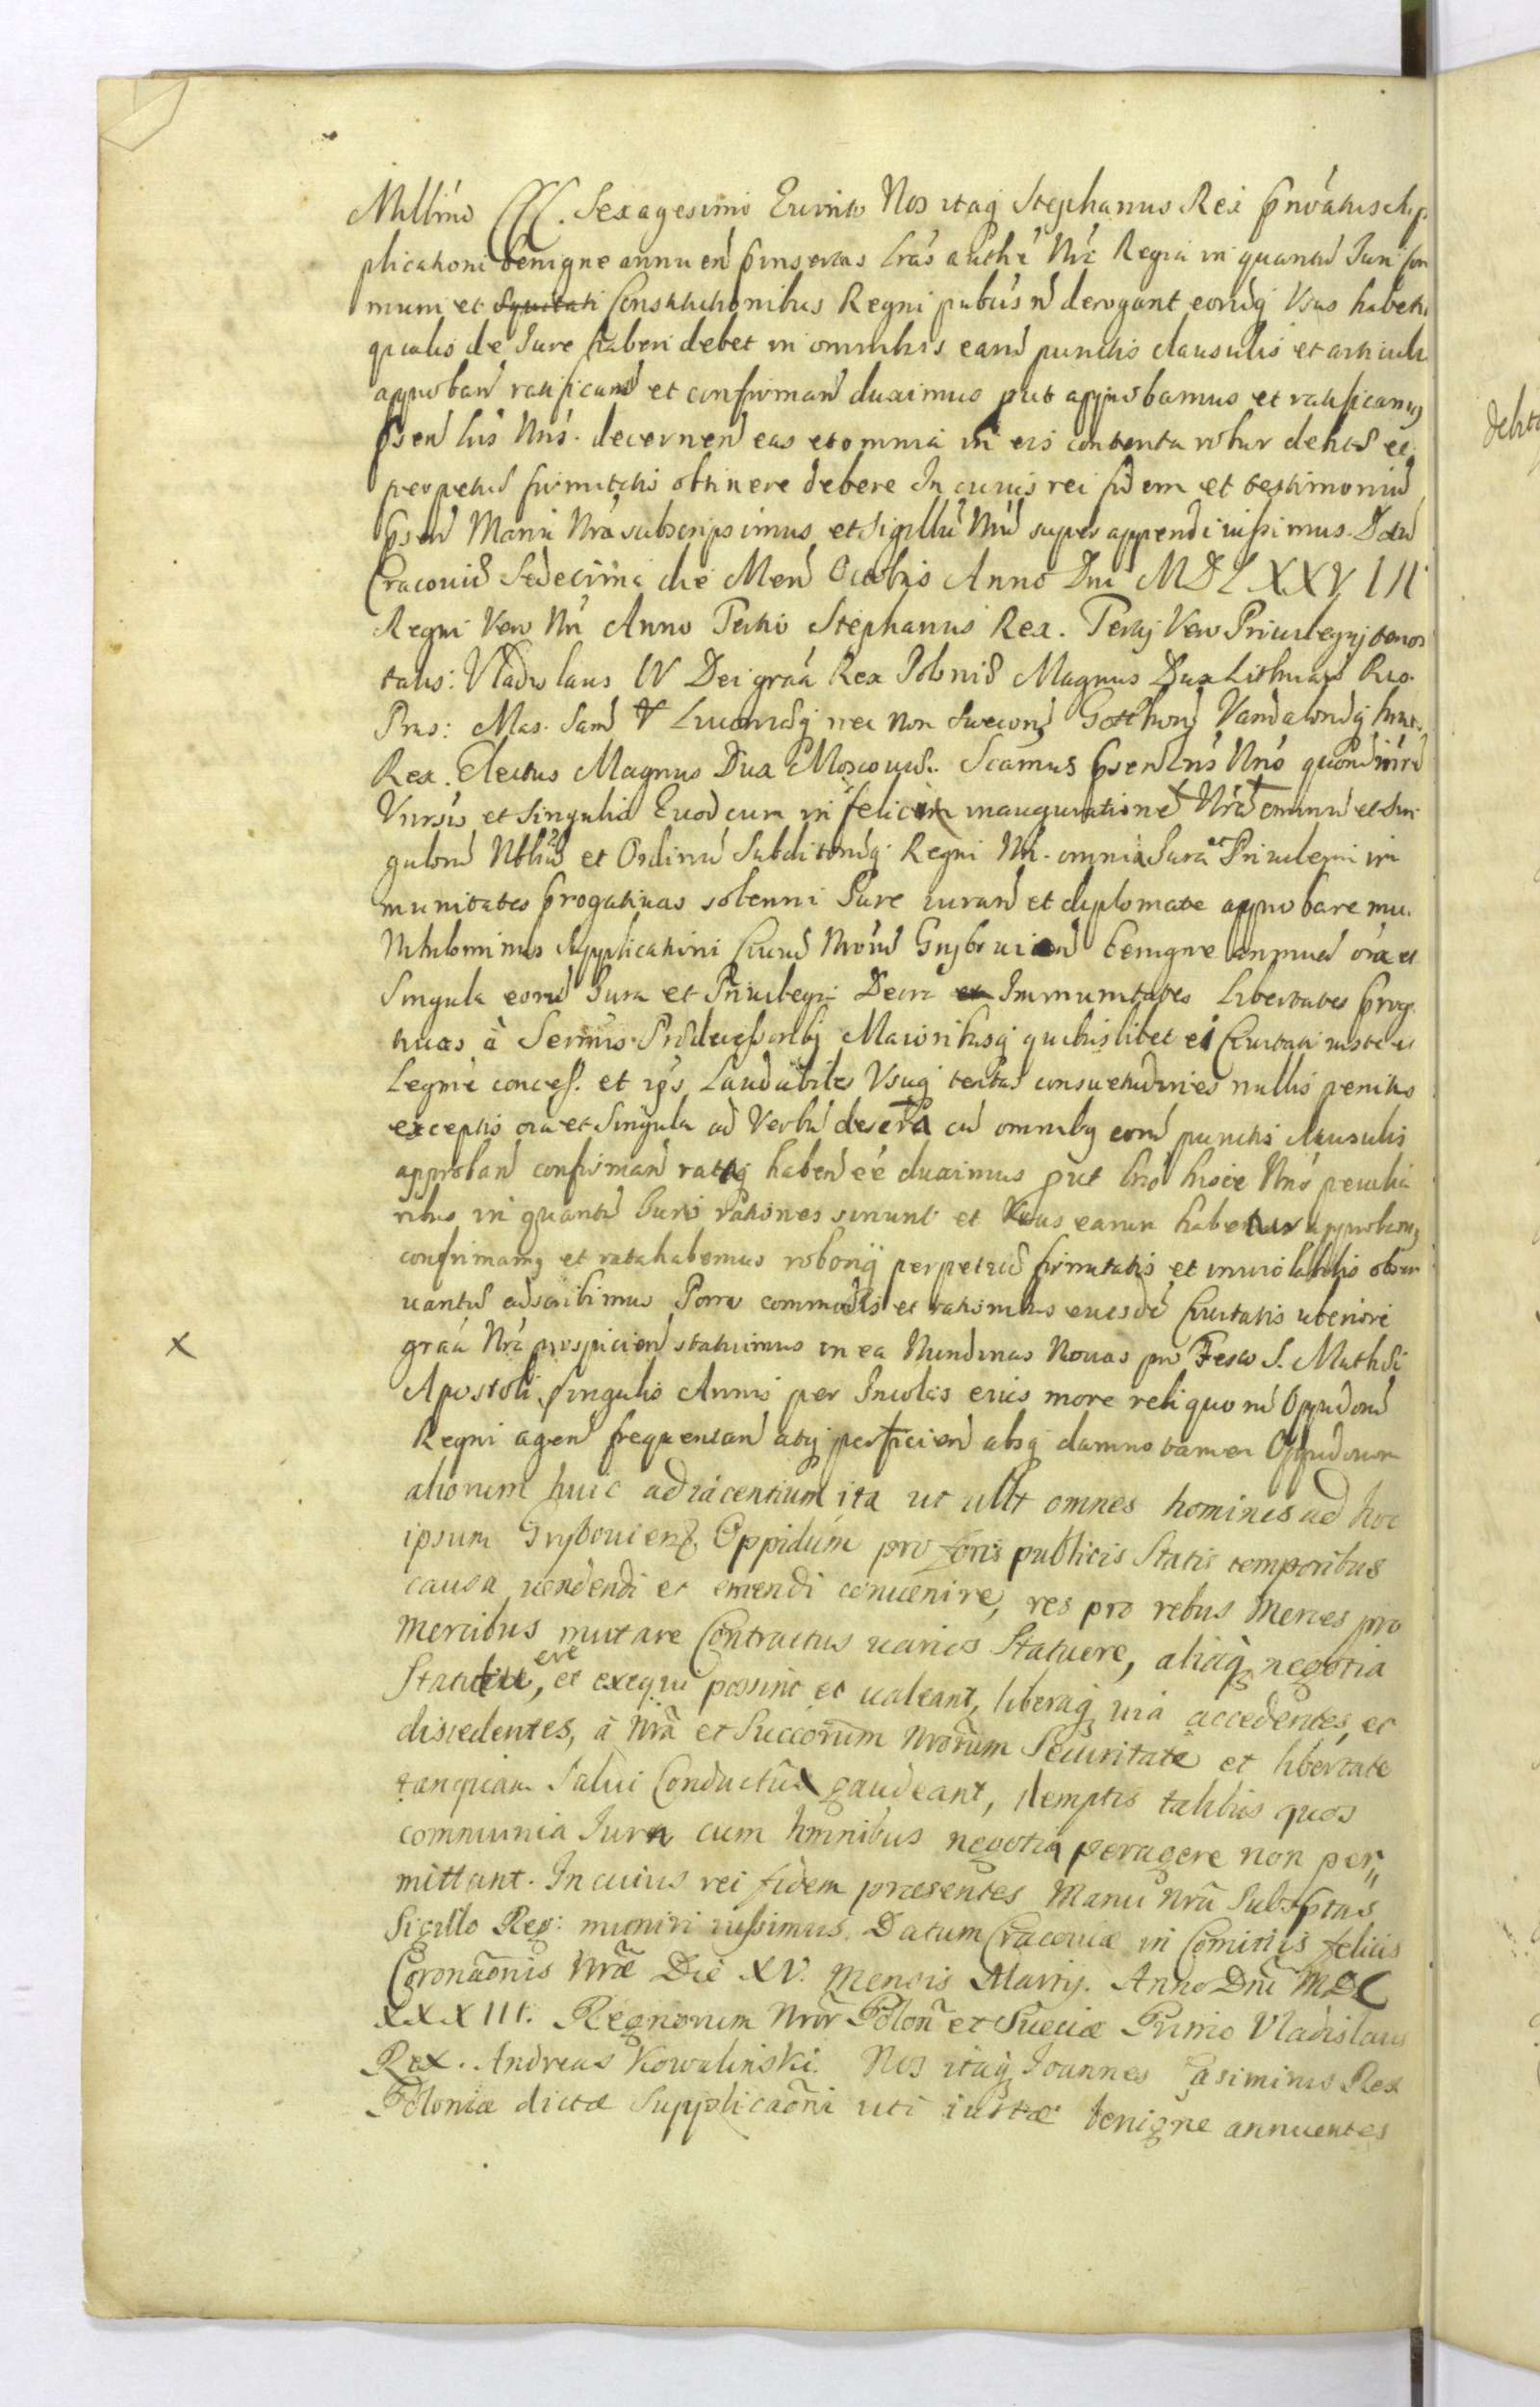 Millmo CCC. Sexagesimo Quinto Nos itaq Stephanus Rex prnoatus Sup
plicationi benigne annuen pinsertas Lras authe Nra Regia in quantu Juri com
muni et Equitati Constitutionibus Regni publis n derogant eorudq Usus habetur
qualis de Jure haberi debet in omnibus earu punctis clausulis et articulis
approban ratifican et confirman duximus put approbamus et ratificamus
psen Lris Nris decernen eas et omnia in eis contenta robur debitæ et
perpetuæ firmitatis obtinere debere In cuius rei fidem et testimoniu
psen Manu Nra subscripsimus et Sigillu Nru super appendi iussimus. Datu
Cracoviæ Sedecima die Men Octobris Anno Dni MDLXXVIII
Regni Vero Nri Anno Tertio Stephanus Rex. Tertij Vero Priuilegij tenor
talis: Vladislaus IV Dei graa Rex Poloniæ Magnus Dux Lithuaniæ Rus.
Prus: Mas. Sam Liuoniæq nec non Suecoru Gotthoru Vandaloruq hæred.
Rex. Electus Magnus Dux Moscouiæ. Significamus psen Lris Nris quoru intere
Vniuersis et Singulis Quod cum in felici inauguratione Nra omniu et Sin
guloru Nobiliu et Ordinu Subditoruq Regni Nri. omnia Jura et Priuilegia im
munitates prrogatiuas solenni Jure iuran et diplomate approbauerimus.
Nihilominus Supplicationi Ciuiu Nroru Grybouien benigne annuen oia et
Singula eoru Jura et Priuilegia Decreta Immunitates Libertates prrog
tiuas à Serenis Prædecessoribq Maioribusq quibuslibet ei Ciuitati iuste et
Legitime concess. et ipsis Laudabiles Usuq tentas consuetudines nullis penitus
exceptis oia et Singula ad Verbu descrpta cu omnibq eoru punctis clausulis
approban confirman rataq haben ee duximus put Lris hisce Nris peculia
ribus in quantu Juris rationes sinunt et Usus earum habetur approbamq
confirmamq et rata habemus roborisq perpetuæ firmitatis et inuiolabilis obser
uantiæ adscribimus Porro commodis et rationibus eiusde Ciuitatis uberiore
graa Nra prospicien statuimus in ea Nundinas Nouas pro Festo S. Mathæi
Apostoli singulis Annis per Incolas eius more reliquoru Oppidoru
Regni agen frequentan atq perficien absq damno tamen Oppidorum
aliorum huic adiacentium, ita ut ullt omnes homines ad hoc
ipsum Grybouiens. Oppidum pro foris publicis Statis temporibus
causa uendendi et emendi conuenire, res pro rebus Merces pro
Mercibus mutare Contractus uarios Statuere, aliaq negotia
Statuere, et exequi possint et ualeant, liberaq uia accedentes, et
discedentes, à Nra et Succorum Nrorum Securitate et libertate
tanquam Salui Conductus gaudeant, demptis talibus quos
communia Jura cum hominibus negotia peragere non per,,
mittant. In cuius rei fidem præsentes Manu Nra Subscptas
Sigillo Reg: muniri iussimus. Datum Cracouiæ in Comitiis felicis
Coronaonis Nræ Die XV. Mensis Martij. Anno Dni MDC
XXXIII. Regnorum Nror Polon et Sueciæ Primo Vladislaus
Rex. Andreas Kowalinski. Nos itaq Joannes Casimirus Rex
Poloniæ dictæ Supplicaoni uti iustæ benigne annuentes
x